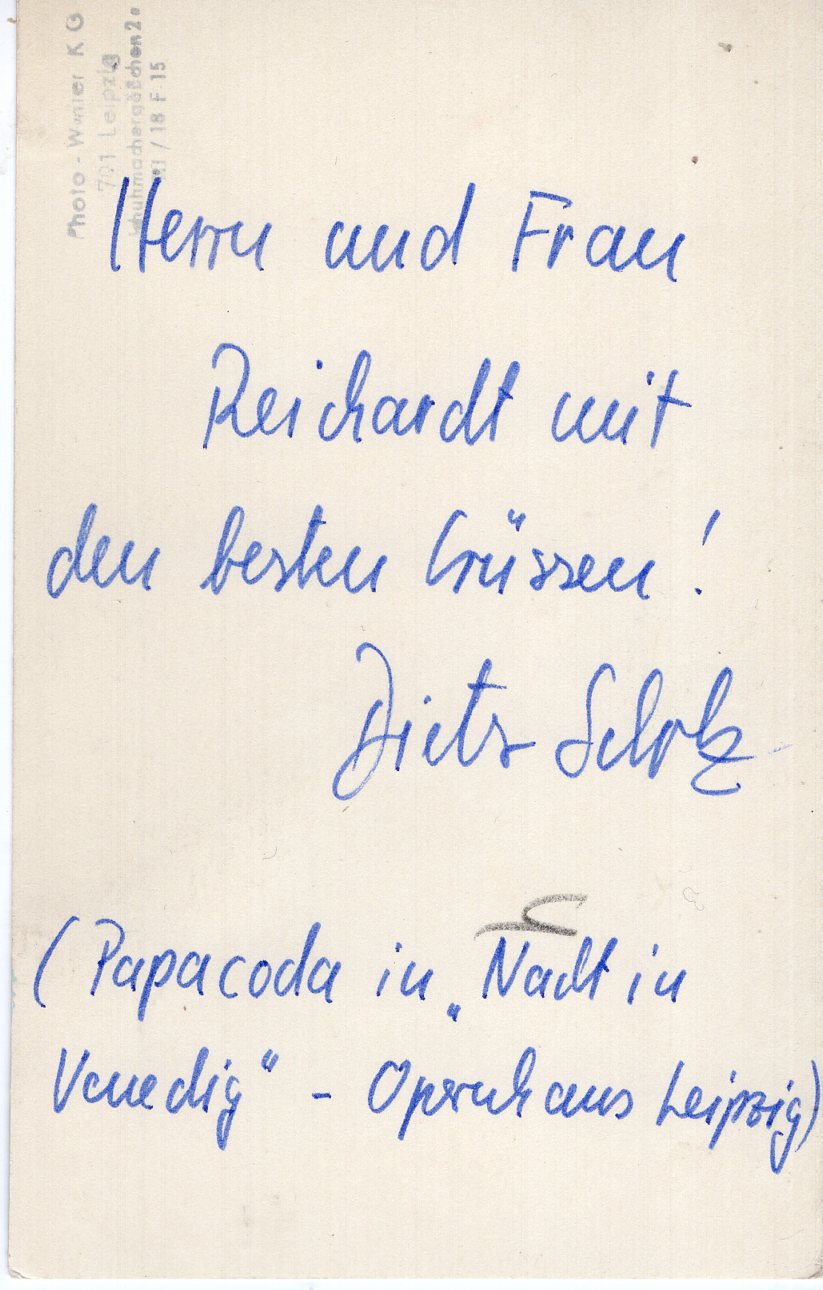 Photo-Winter KG
701 Leipzig
Schuhmachergäßchen 2
/ 18 F 15
Herrn und Frau
Reichardt mit
den besten Grüssen!
Dietz Scholz
(Papacoda in „Nacht in
Venedig“ - Opernhaus Leipzig)